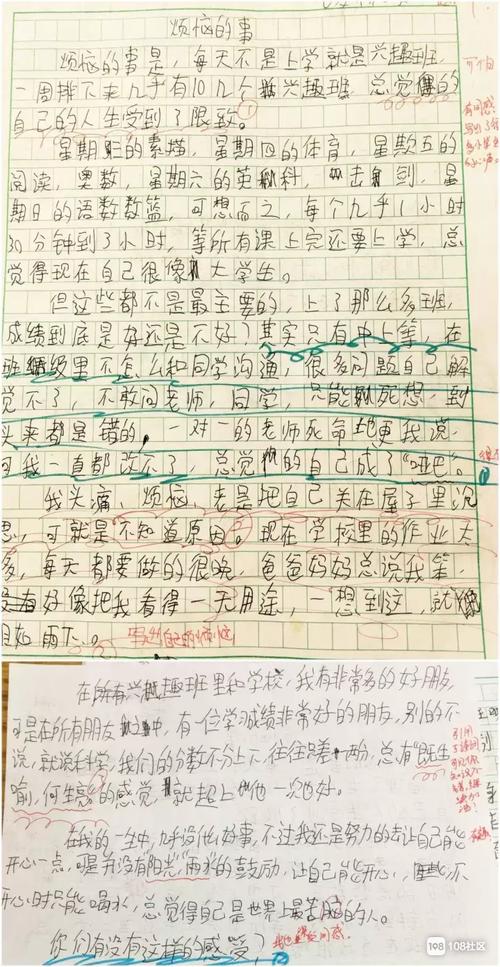 烦恼的事
烦恼的事是，每天不是上学就是兴趣班，
一周排下来几乎有10几个兴趣班，总觉得的
自己的人生受到了限致。①
星期三的素描，星期四的体育，星期五的
阅读，奥数，星期六的英科，击剑，星
期日的语数数篮，可想而之，每个几乎1小时
30分钟到3小时，等所有课上完还要上学，总
觉得现在自己很像大学生。
但这些都不是最主要的，上了那么多班，
成绩到底是好还是不好？其实只有中上等，在
班级里不怎么和同学沟通，很多问题自己解
觉不了，不敢问老师，同学，只能死想，到
头来都是错的，一对一的老师死命地更我说，
可我一直都改不了，总觉的自己成了“哑巴”。
我头痛，烦恼，老是把自己关在屋子里沉
思，可就是不知道原因。现在学校里的作业太
多，每天都要做的很晚，爸爸妈妈总说我笨，
好像把我看得一无用途，一想到这，就
目如雨下。 写出自己的烦恼
在所有兴趣班里和学校，我有非常多的好朋友，
可是在所有朋友之中，有一位学习成绩非常好的朋友，别的不
说，就说科学，我们的分数不分上下，往往只差一两分，总有“既生
喻，何生亮”的感觉，就超上他一次也好。
在我的一生中，几乎没什么好事，不过我还是努力的去让自己能
开心一点，可是并没有阳光，雨水的鼓励，让自己能开心，不
开心时只能喝水，总觉得自己是世界上最苦脑的人。
你们有没有这样的感受？
108社区